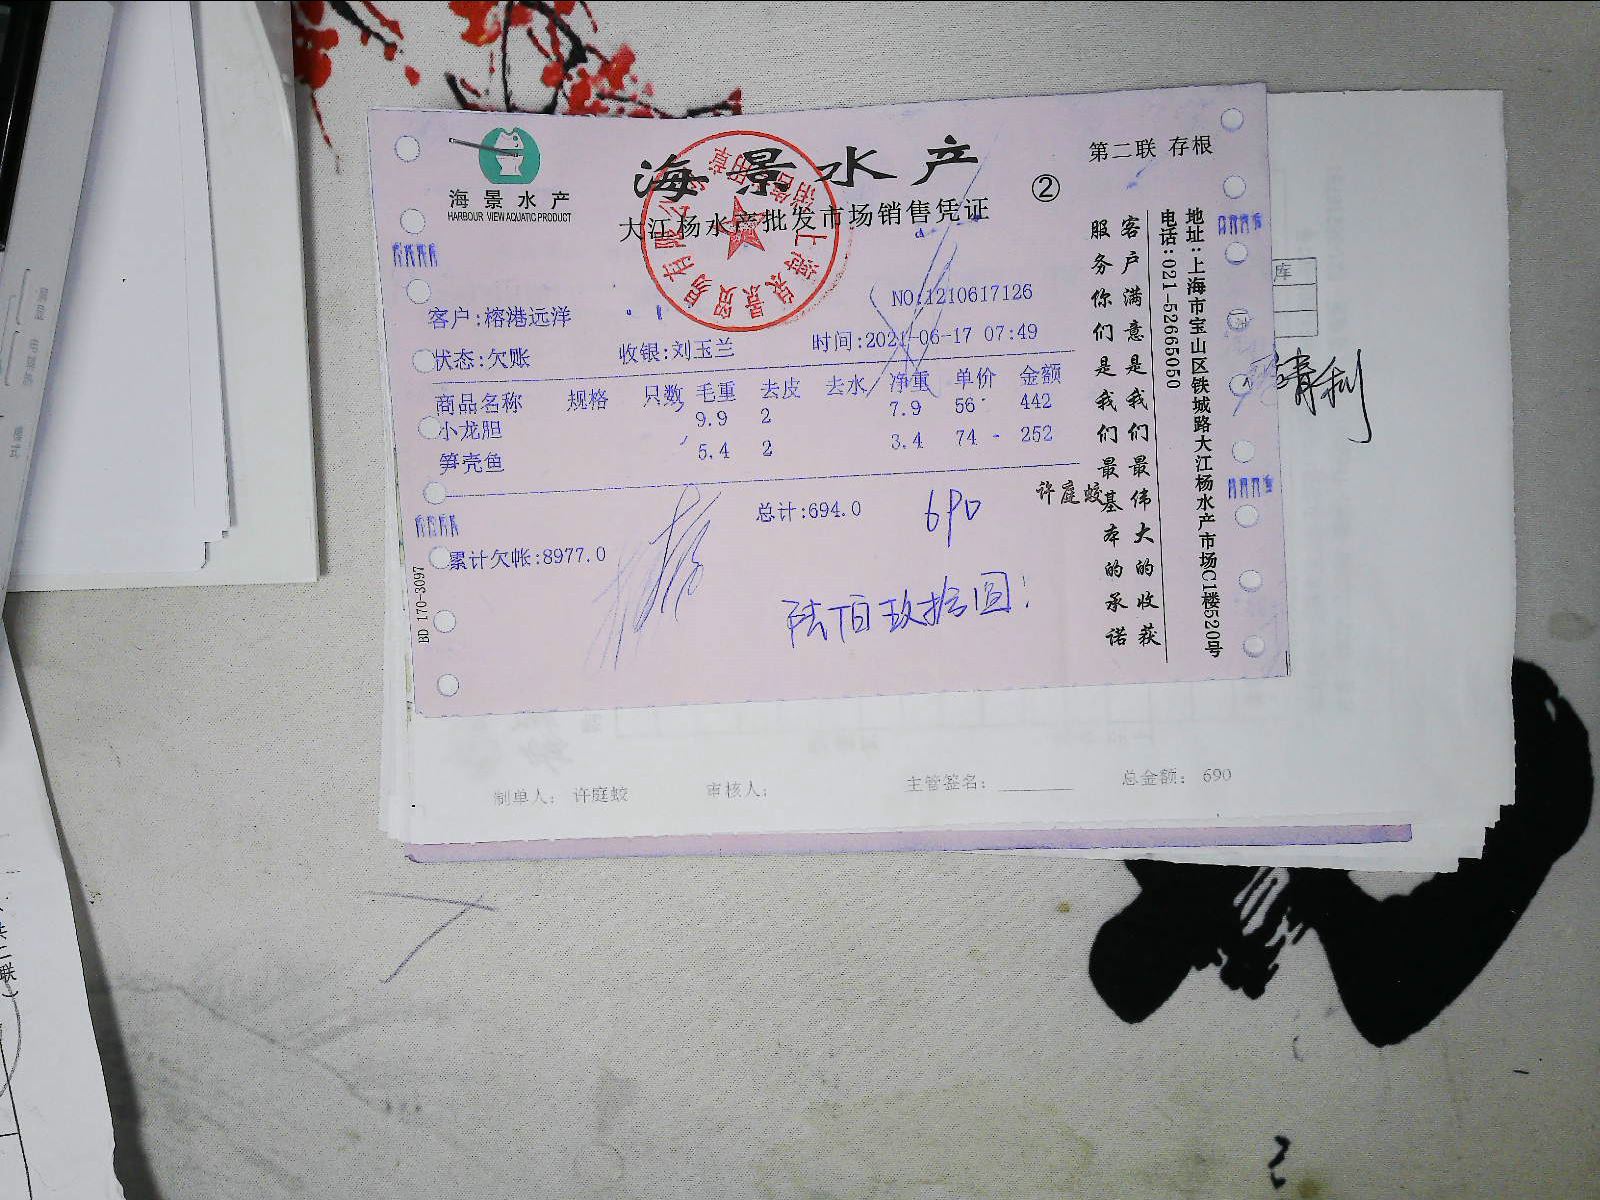 海景水产
HARBOUR VIEW AQUATIC PRODUCT
海景水产
大江杨水产批发市场销售凭证
②
第二联 存根
NO:1210617126
客户:榕港远洋
状态:欠账 收银:刘玉兰 时间:2021-06-17 07:49
商品名称 规格 只数 毛重 去皮 去水 净重 单价 金额
小龙胆 9.9 2 7.9 56 442
笋壳鱼 5.4 2 3.4 74 252
总计:694.0
690
许庭蛟
累计欠帐:8977.0
陆佰玖拾圆!
BD 170-3097
客户满意是我们最伟大的收获
服务你们是我们最基本的承诺
地址:上海市宝山区铁城路大江杨水产市场C1楼520号
电话:021-52665050
库
制单人: 许庭蛟 审核人: 主管签名: 总金额: 690